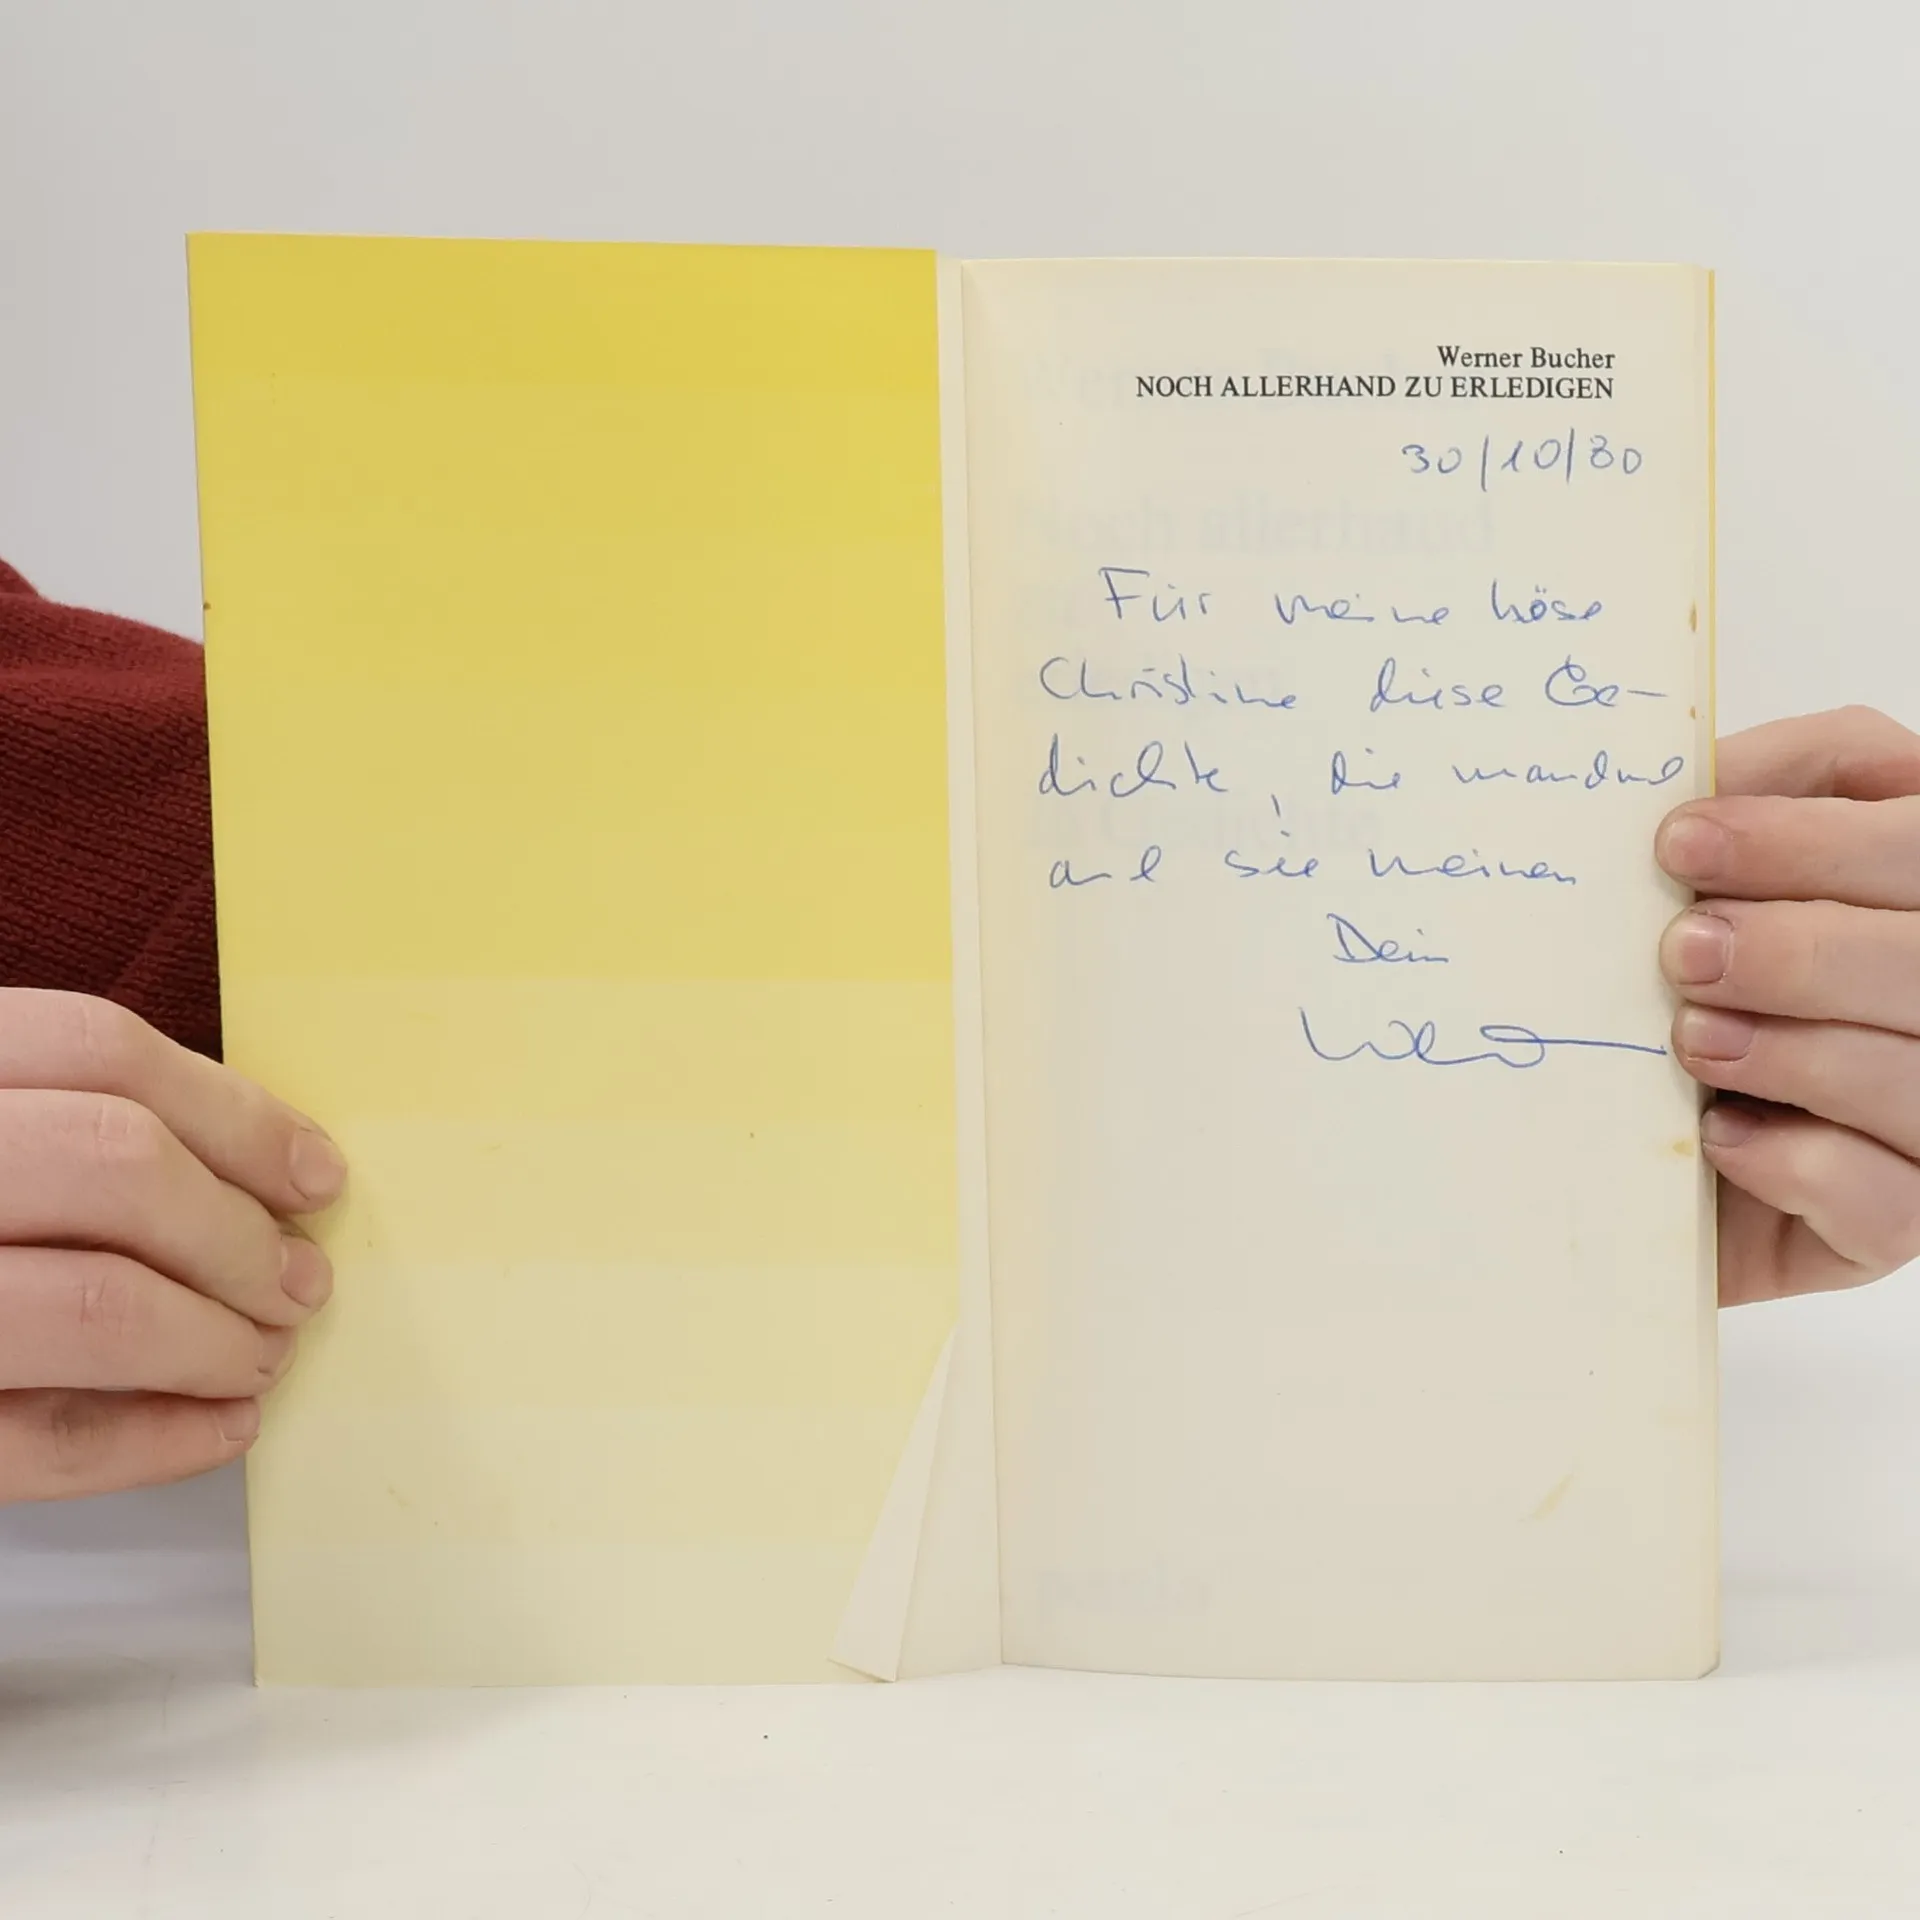 Werner Bucher
NOCH ALLERHAND ZU ERLEDIGEN
30/10/80
Für meine böse
Christine diese Ge-
dichte, die manchmal
auch sie meinen!
Dein
Noch allerhand